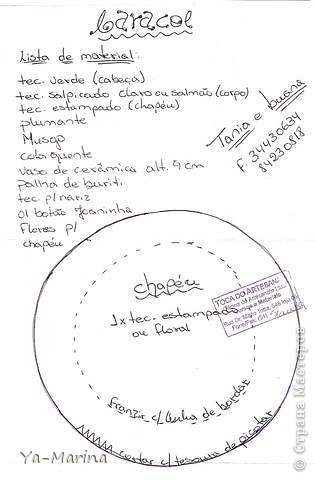 caracol
Lista de material:
tec. verde (cabeça)
tec. salpicado claro ou salmão (corpo)
tec. estampado (chapéu)
plumante
Musgo
cola quente
Vaso de cerâmica alt. 9 cm
Palha de buriti
tec. p/ nariz
01 botão Joaninha
Flores p/
chapéu
Tania e Luana
F: 34430634
84230818
chapéu
1x tec. estampado
ou floral
TOCA DO ARTESANATO
franzir c/ linha de bordar
cortar c/ tesoura de picotar
Ya-Marina
© Страна Мастеров